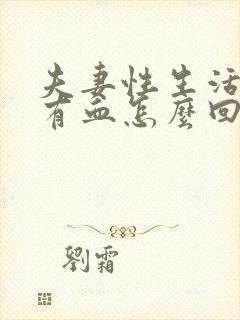 夫妻性生活
有血怎麼回
劉霜